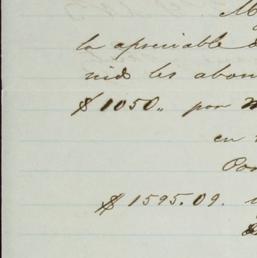 la apreciable
nido les abon
$1050,, por
en
$1595.09.